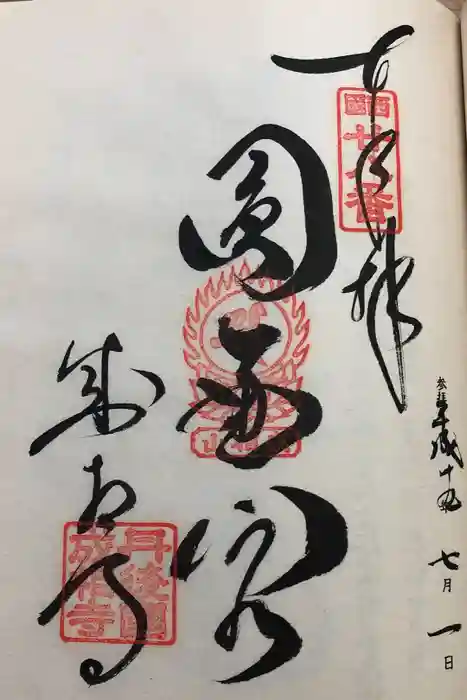 参拝 平成十九 七月一日
奉拝
西國
廿八番
圓
成相山
成相寺
丹後國
成相寺